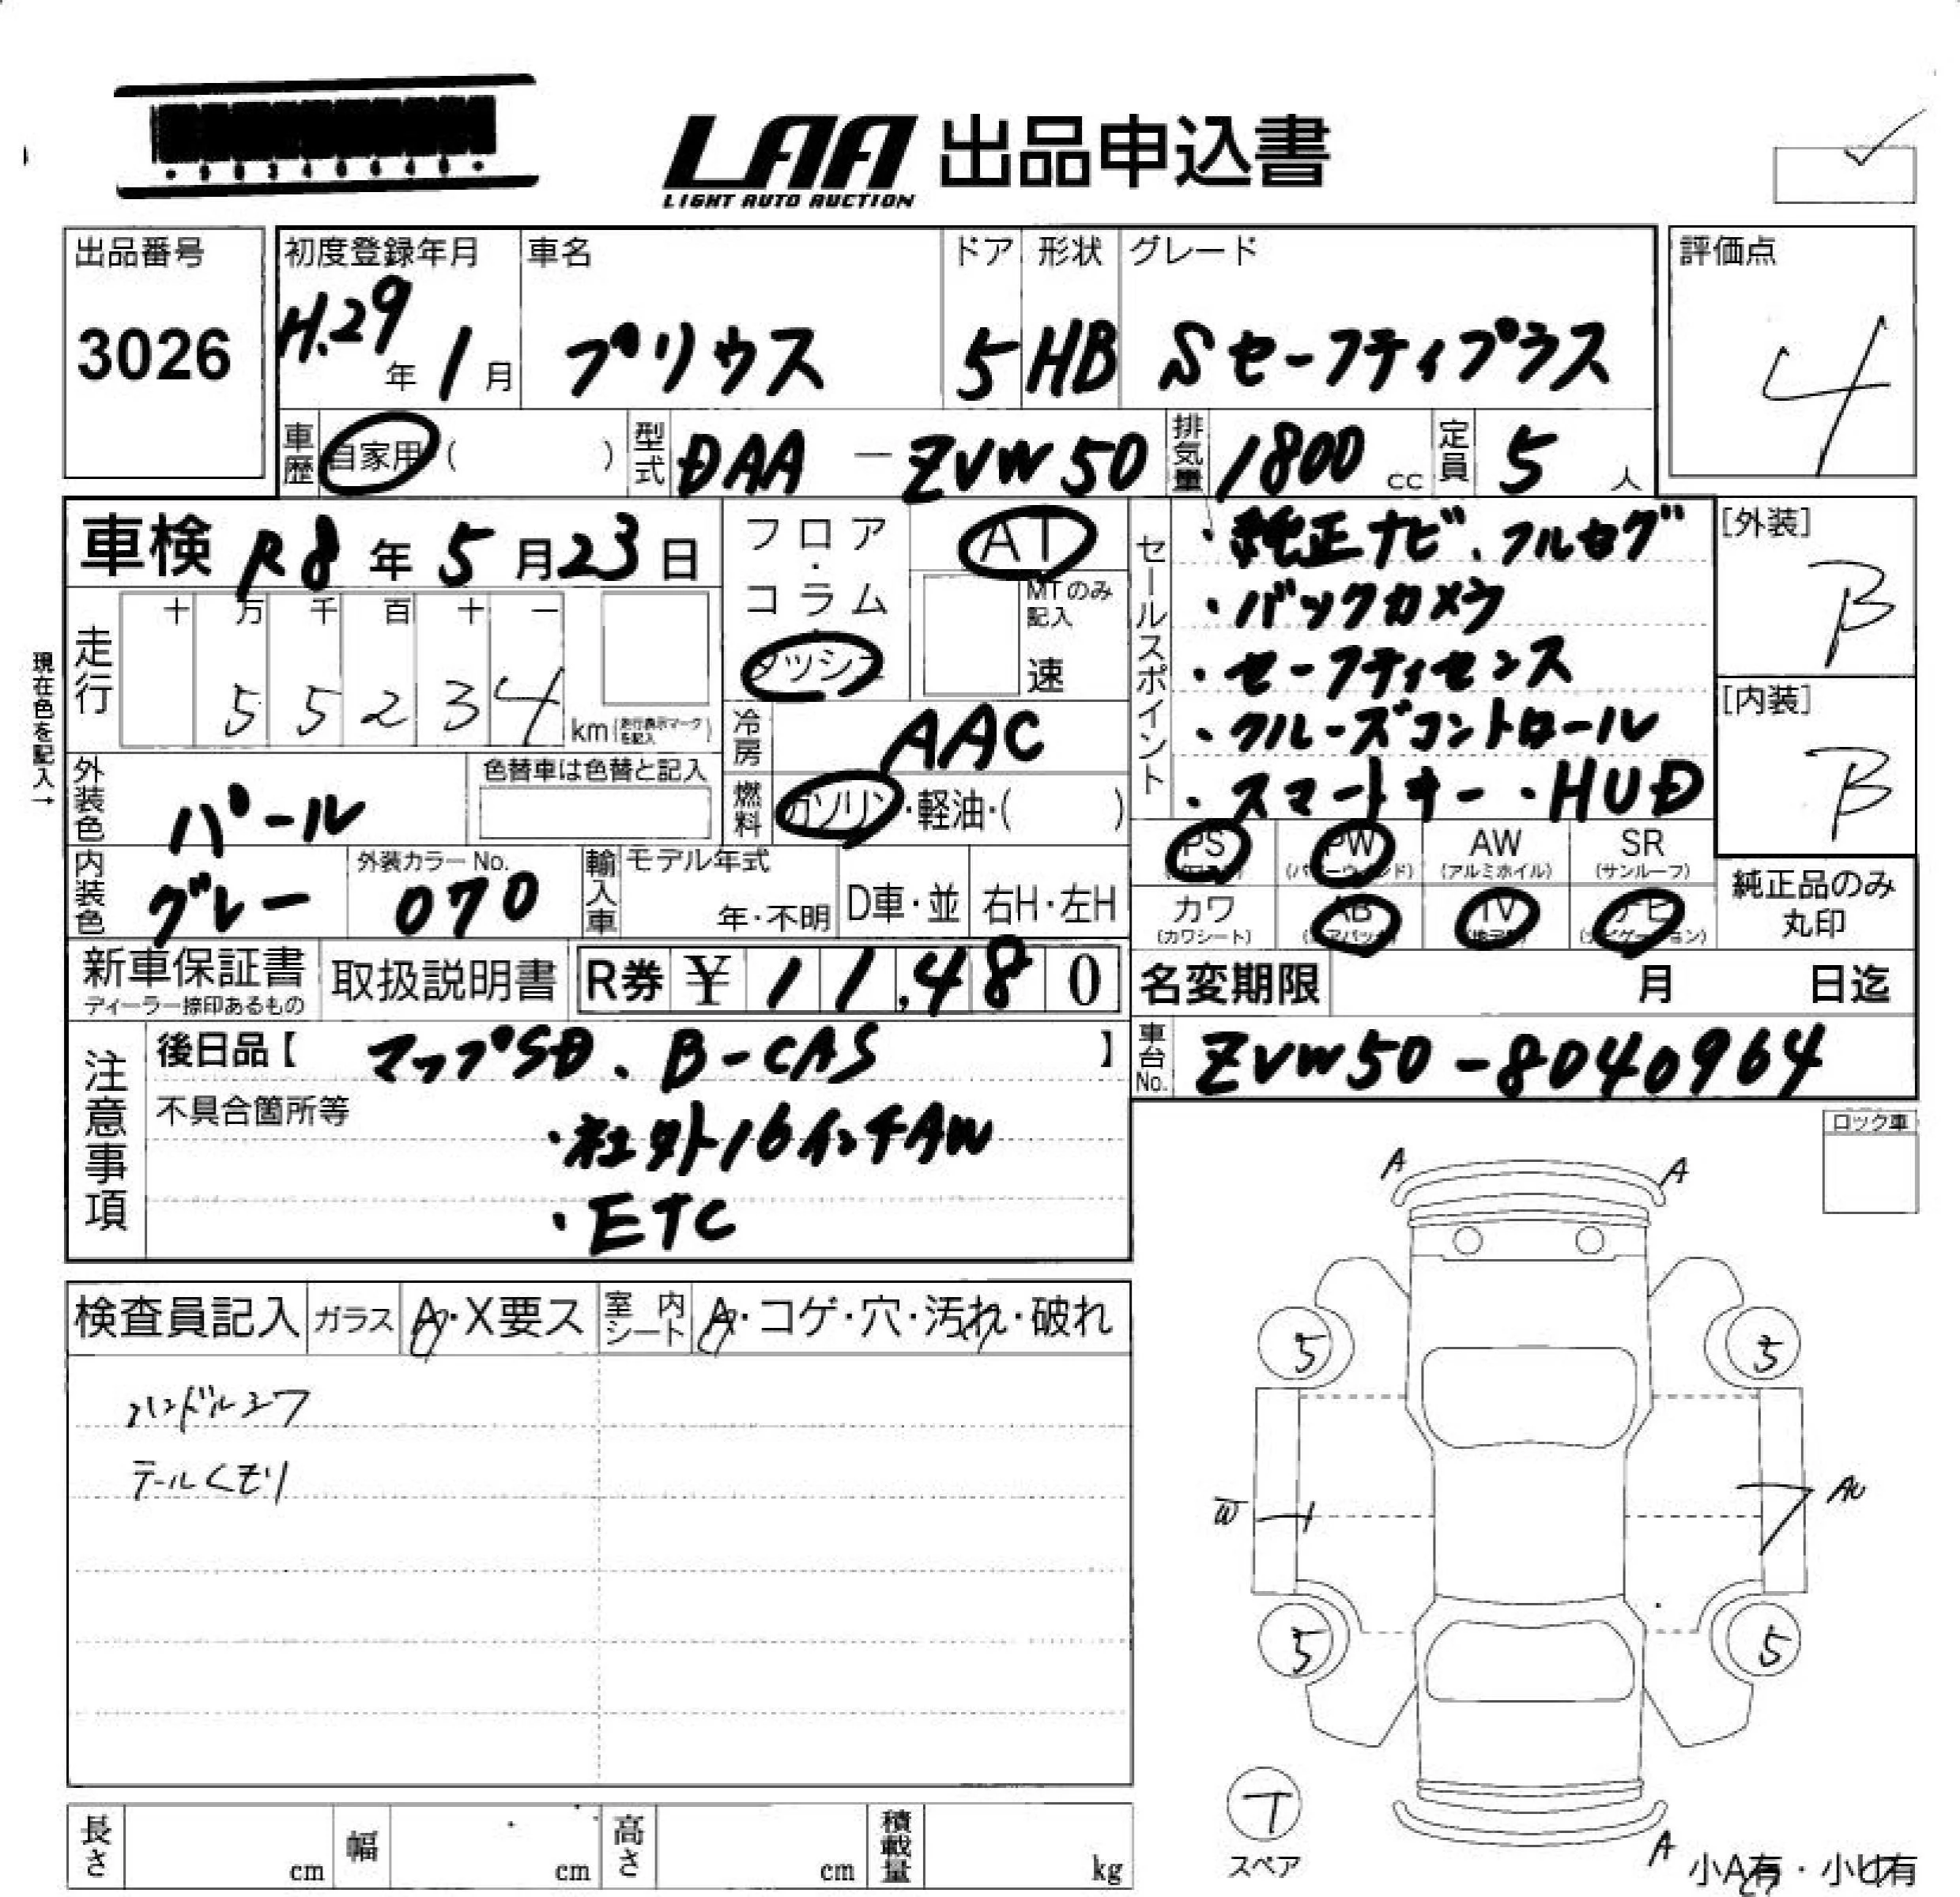 LAA 出品申込書
LIGHT AUTO AUCTION
出品番号
3026
初度登録年月
H.29年1月
車名
プリウス
ドア
5
形状
HB
グレード
Sセーフティプラス
評価点
4
車歴 自家用 ( )
型式 DAA-ZVW50
排気量 1800 cc
定員 5 人
車検 R8年5月23日
フロア・コラム・ダッシュ
AT
MTのみ記入
速
セールスポイント
・純正ナビ、フルセグ
・バックカメラ
・セーフティセンス
・クルーズコントロール
・スマートキー・HUD
[外装]
B
[内装]
B
現在色を記入→
走行
十 万 千 百 十 一
5 5 2 3 4 km (走行表示マークを記入)
冷房 AAC
燃料 ガソリン・軽油・( )
外装色 パール
色替車は色替と記入
内装色 グレー
外装カラーNo.
070
輸入車
モデル年式
年・不明
D車・並
右H・左H
PS
PW (パワーウィンド)
AW (アルミホイル)
SR (サンルーフ)
カワ (カワシート)
AB (エアバック)
TV
ナビ (ナビゲーション)
純正品のみ丸印
新車保証書
ディーラー捺印あるもの
取扱説明書
R券 ¥ 11,480
名変期限 月 日迄
車台No. ZVW50-8040964
注意事項
後日品【 マップSD、B-CAS 】
不具合箇所等
・社外16インチAW
・ETC
ロック車
検査員記入
ガラス A・X要ス
室内シート A・コゲ・穴・汚れ・破れ
ハンドルシワ
テールくもり
A A
5 5
W AU
5 5
T
スペア
A
小A有・小U有
長さ cm
幅 cm
高さ cm
積載量 kg